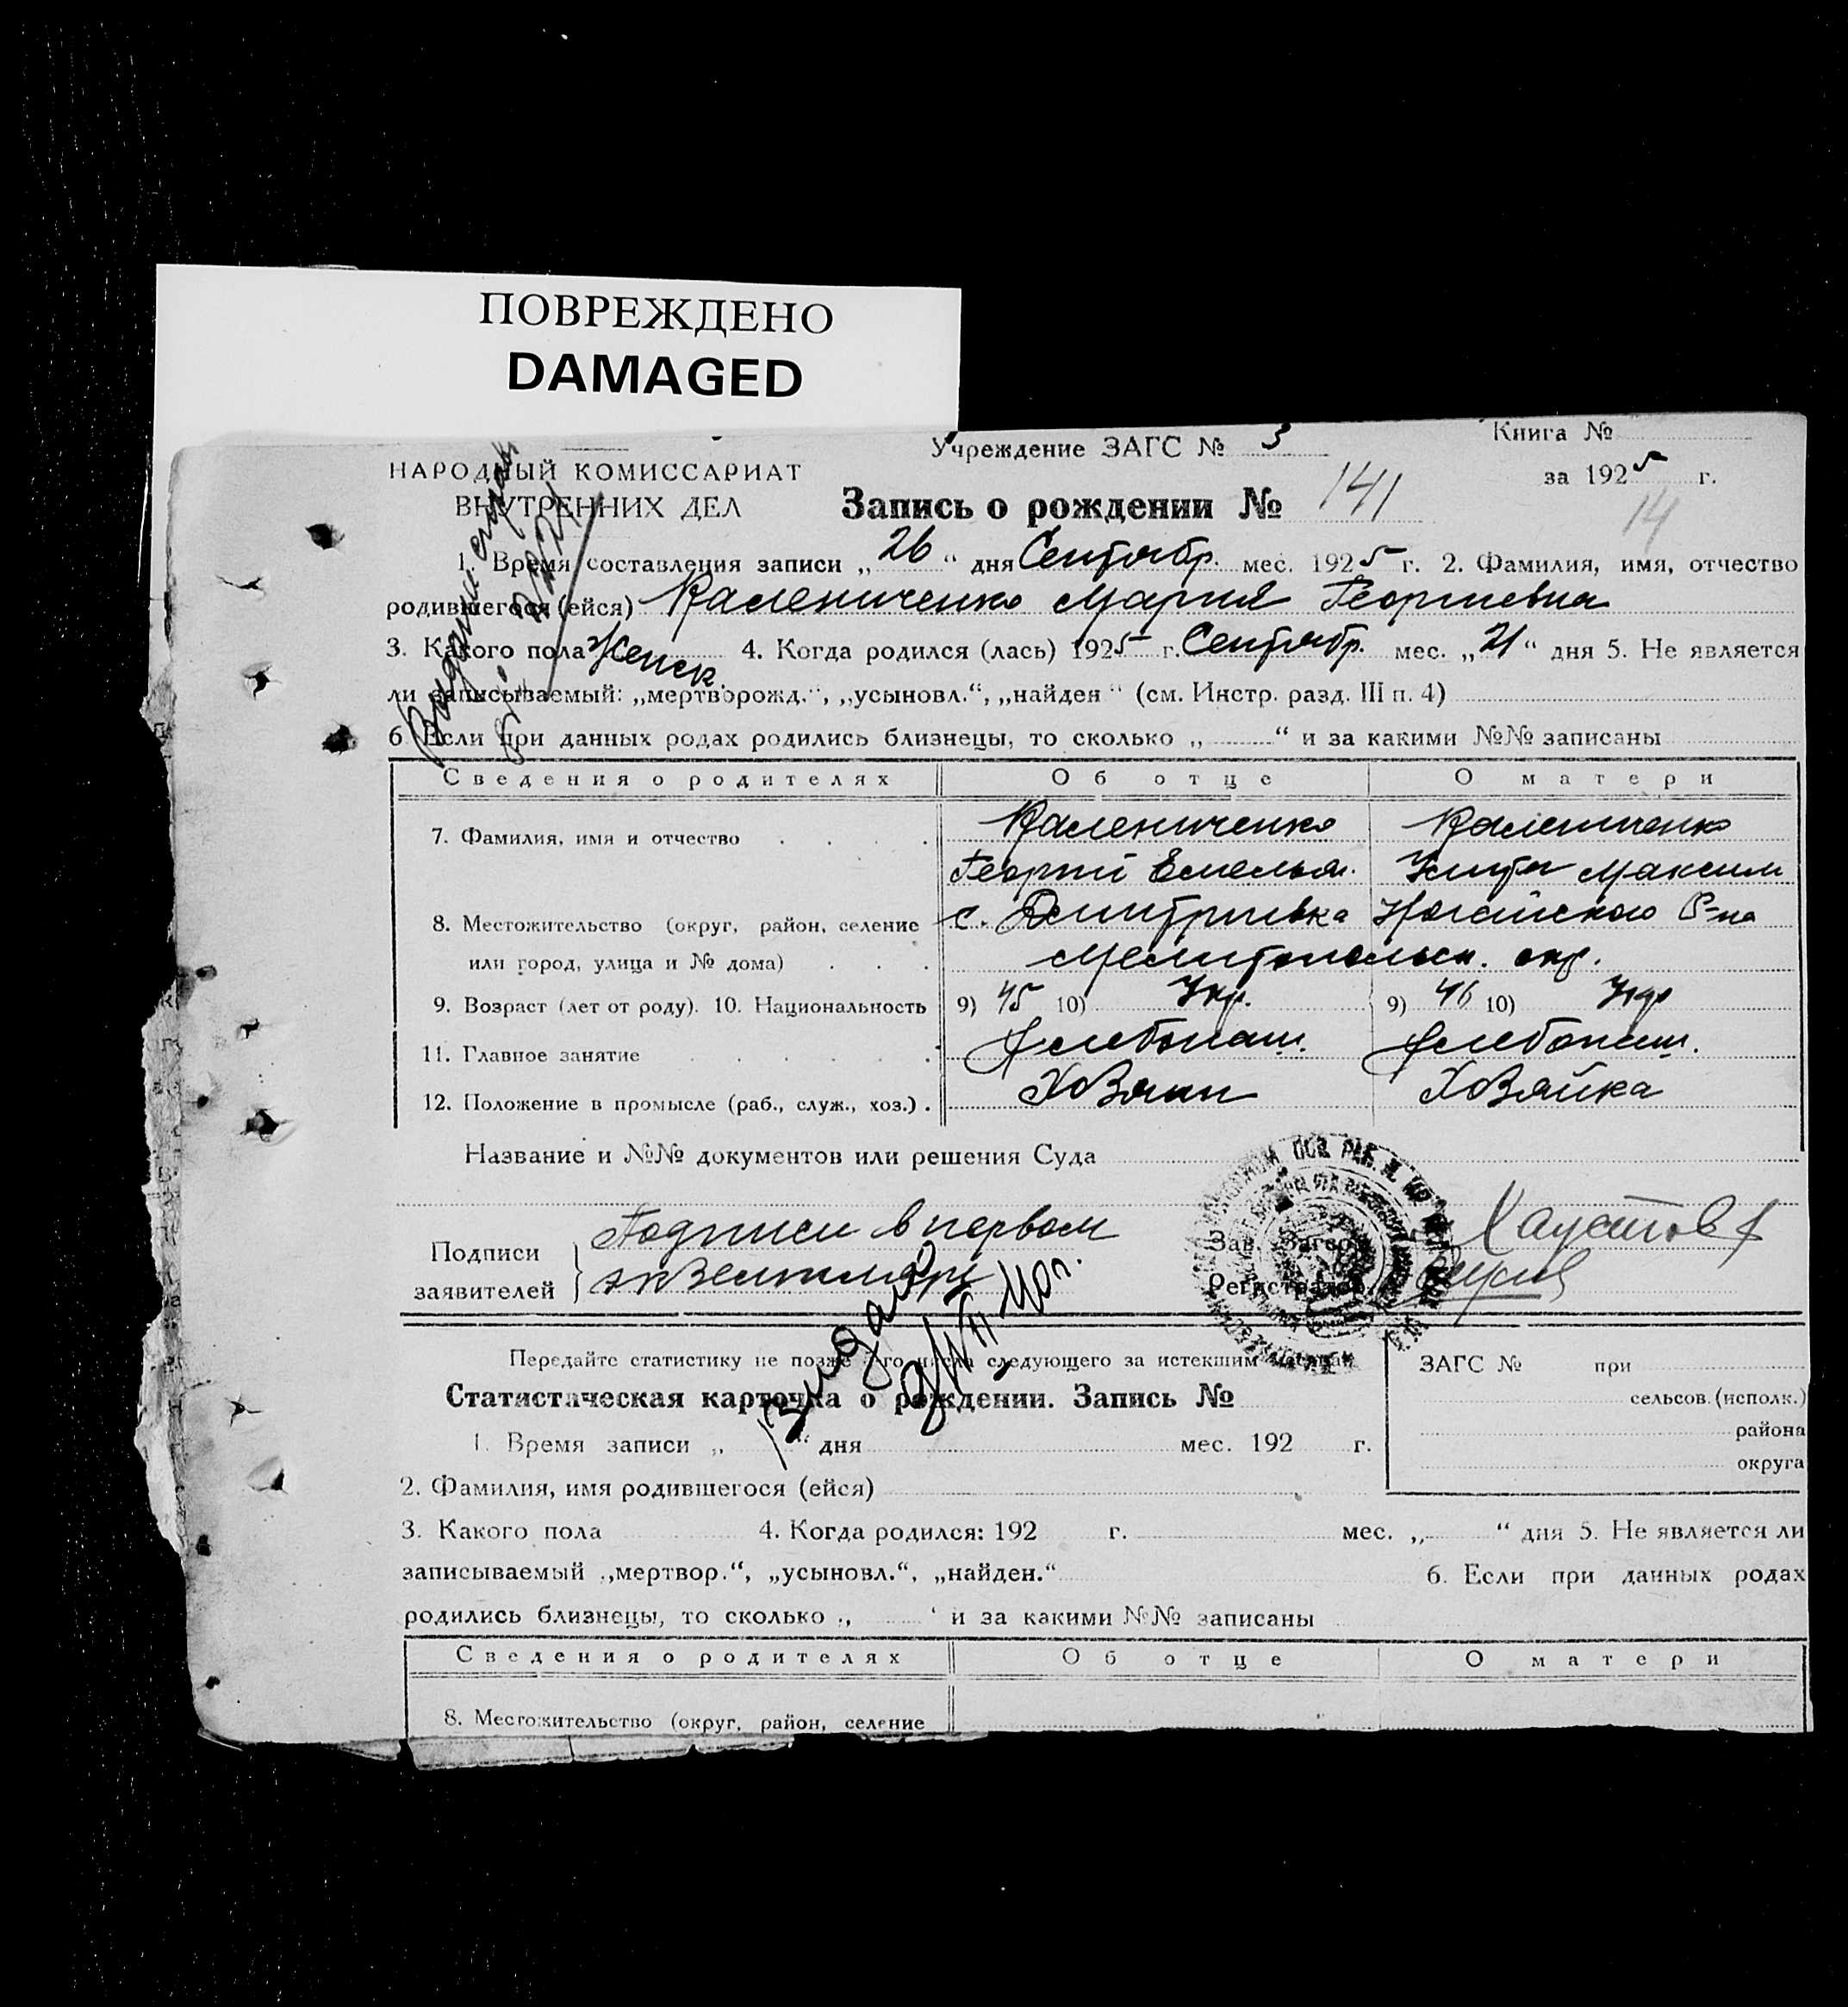 ПОВРЕЖДЕНО
DAMAGED
Учреждение ЗАГС № 3
Книга №
НАРОДНЫЙ КОМИССАРИАТ
ВНУТРЕННИХ ДЕЛ
за 1925 г.
Запись о рождении № 141
14
1. Время составления записи „26“ дня Сентябр. мес. 1925 г. 2. Фамилия, имя, отчество
родившегося (ейся) Калениченко Мария Георгиевна
3. Какого пола Женск. 4. Когда родился (лась) 1925 г. Сентябр. мес. „21“ дня 5. Не является
ли записываемый: „мертворожд.“, „усыновл.“, „найден“ (см. Инстр. разд. III п. 4)
6 Если при данных родах родились близнецы, то сколько „ “ и за какими №№ записаны
Сведения о родителях Об отце О матери
7. Фамилия, имя и отчество Калениченко Калениченко
Георгий Емельян. Улита Максим
8. Местожительство (округ, район, селение с. Дмитриевка Ногайского р-на
или город, улица и № дома) Мелитопольск. окр.
9. Возраст (лет от роду). 10. Национальность 9) 45 10) Укр. 9) 46 10) Укр
11. Главное занятие Хлебопаш. Хлебопаш.
12. Положение в промысле (раб., служ., хоз.). Хозяин Хозяйка
Название и №№ документов или решения Суда
Подписи заявителей } Подписи в первом
экземпляре
Зав. Загсом Хаустов
Регистратор
Выдано
Передайте статистику не позже го числа следующего за истекшим
Статистическая карточка о рождении. Запись №
ЗАГС № при
сельсов. (исполк.)
района
округа
1. Время записи „ “ дня мес. 192 г.
2. Фамилия, имя родившегося (ейся)
3. Какого пола 4. Когда родился: 192 г. мес. „ “ дня 5. Не является ли
записываемый „мертвор.“, „усыновл.“, „найден.“ 6. Если при данных родах
родились близнецы, то сколько „ “ и за какими №№ записаны
Сведения о родителях Об отце О матери
8. Местожительство (округ, район, селение